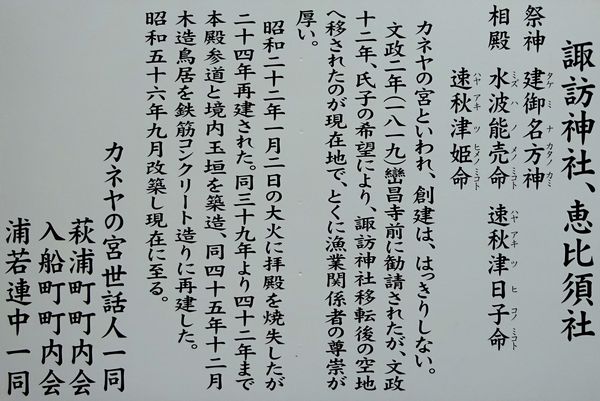 諏訪神社、恵比須社
祭神　建御名方神
タケミナカタノカミ
相殿　水波能売命　速秋津日子命
ミズハノメノミコト　ハヤアキツヒコノミコト
速秋津姫命
ハヤアキツヒメノミコト
カネヤの宮といわれ、創建は、はっきりしない。
文政二年（一八一九）巒昌寺前に勧請されたが、文政
十二年、氏子の希望により、諏訪神社移転後の空地
へ移されたのが現在地で、とくに漁業関係者の尊崇が
厚い。
昭和二十二年一月二日の大火に拝殿を焼失したが
二十四年再建された。同三十九年より四十二年まで
本殿参道と境内玉垣を築造、同四十五年十二月
木造鳥居を鉄筋コンクリート造りに再建した。
昭和五十六年九月改築し現在に至る。
カネヤの宮世話人一同
萩浦町町内会
入船町町内会
浦若連中一同